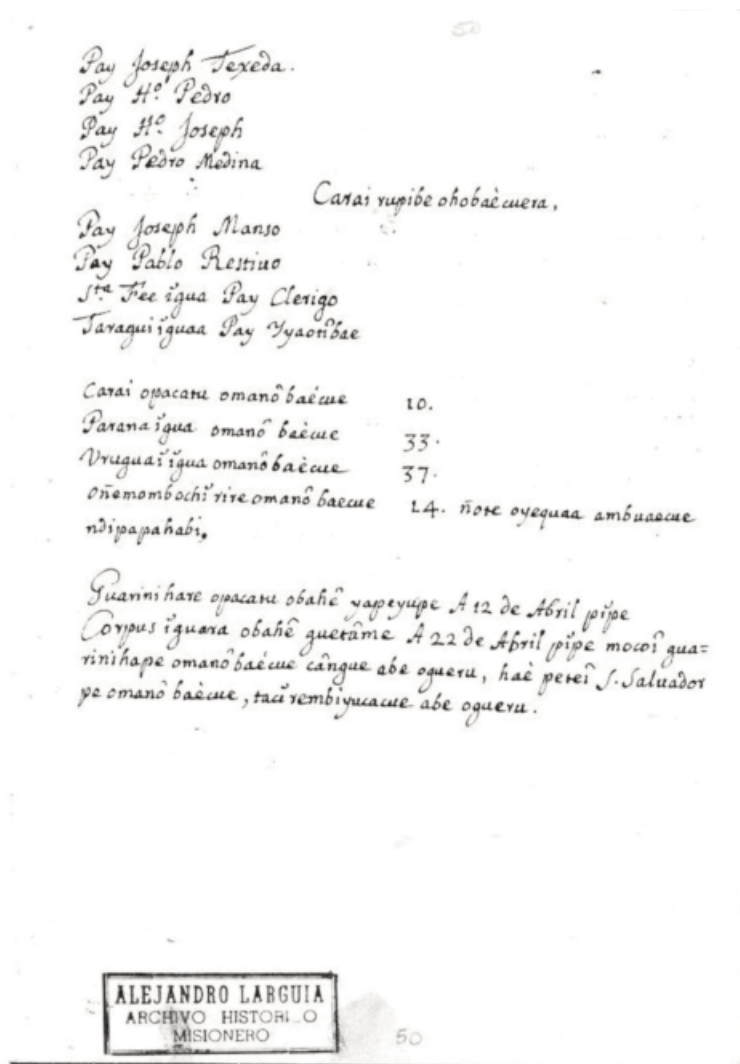 50
Pay Joseph Texeda.
Pay H.º Pedro
Pay H.º Joseph
Pay Pedro Medina
Carai rupibe ohobaècuera.
Pay Joseph Manso
Pay Pablo Restiuo
S.ta Fee ĭgua Pay Clerigo
Taragui ĭguaa Pay Yyaotĭbae
Carai opacatu omanô baècue 10.
Parana ĭgua omanô baècue 33.
Vruguai ĭgua omanô baècue 37.
oñemombochĭ rire omanô baecue 14. ñote oyequaa ambuaecue
ndipapahabi.
Guarinihare opacatu obahê yapeyupe A 12 de Abril pĭpe
Corpus ĭguara obahê guetâme A 22 de Abril pĭpe mocoî gua=
rinihape omanô baècue cângue abe ogueru, haè peteî S. Saluador
pe omanô baècue, tacŭ rembiyucacue abe ogueru.
ALEJANDRO LARGUIA
ARCHIVO HISTORI O
MISIONERO
50